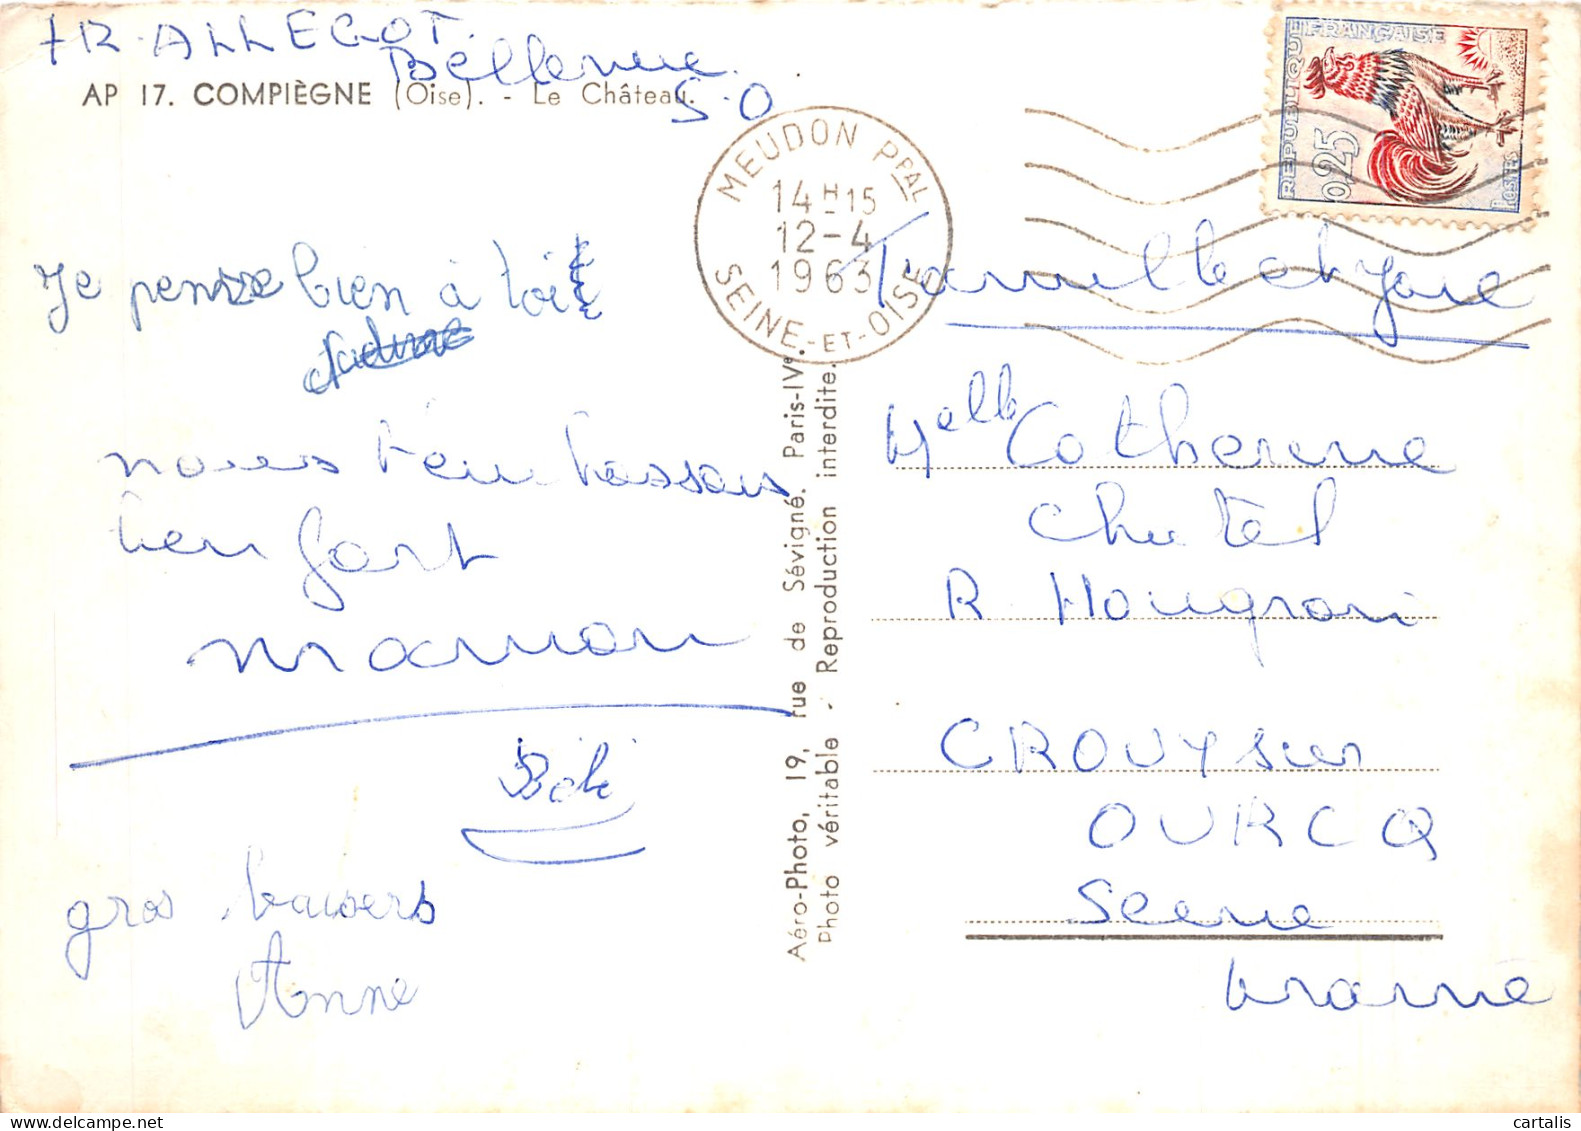 7 R. ALLEGOT.
Bellevue.
S.O
AP 17. COMPIÈGNE (Oise). - Le Château.
MEUDON PPAL
14H15
12-4
1963
SEINE-ET-OISE
REPUBLIQUE FRANÇAISE
0,25
POSTES
Je pense bien à toi
nous t'embrassons
bien fort
maman
Bébé
gros baisers
Anne
Aéro-Photo, 19, rue de Sévigné. Paris-IVe.
Photo véritable - Reproduction interdite.
Famille
Melle Catherine
Chatel
R Hougron
CROUY sur
OURCQ
Seine
marne
cartalis